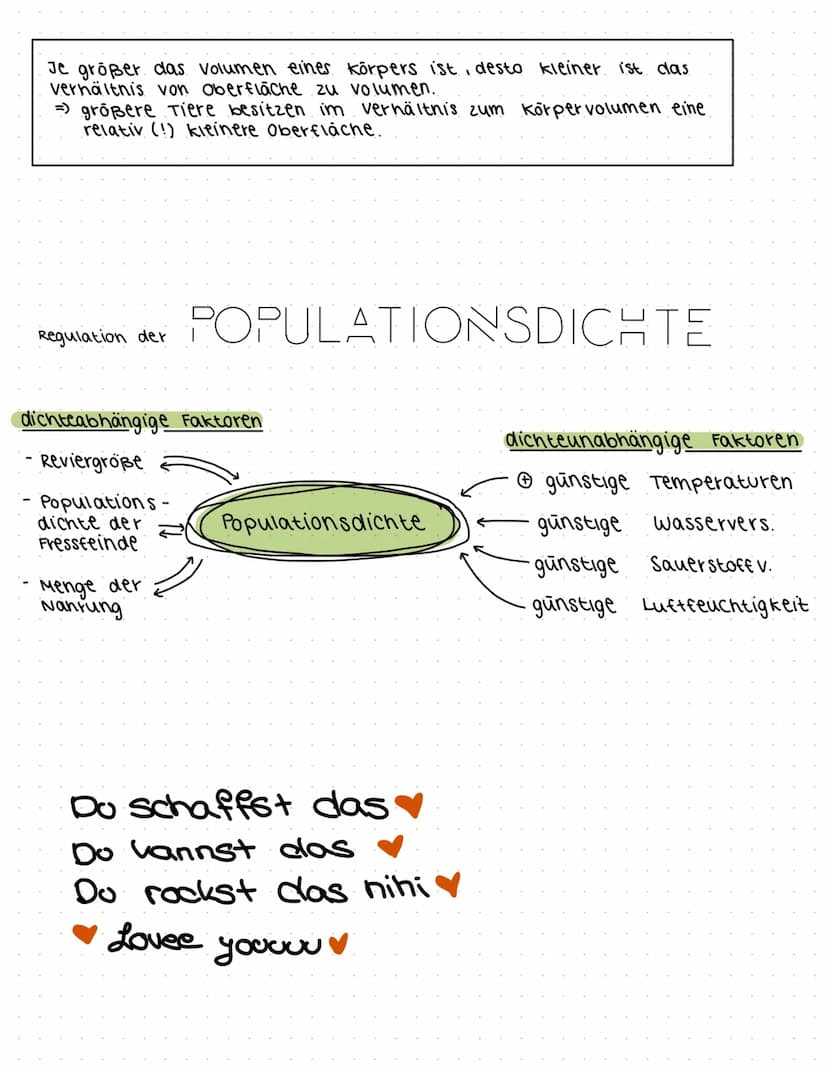 Je größer das Volumen eines Körpers ist, desto kleiner ist das
Verhältnis von Oberfläche zu Volumen.
⇒ größere Tiere besitzen im Verhältnis zum Körpervolumen eine
relativ (!) kleinere Oberfläche.
Regulation der POPULATIONSDICHTE
dichteabhängige Faktoren
- Reviergröße
- Populations-
dichte der
Fressfeinde
- Menge der
Nahrung
Populationsdichte
dichteunabhängige Faktoren
⊕ günstige Temperaturen
günstige Wasservers.
günstige Sauerstoffv.
günstige Luftfeuchtigkeit
Du schaffst das ♥
Du kannst das ♥
Du rockst das nihi ♥
♥ Lovee youuuu ♥